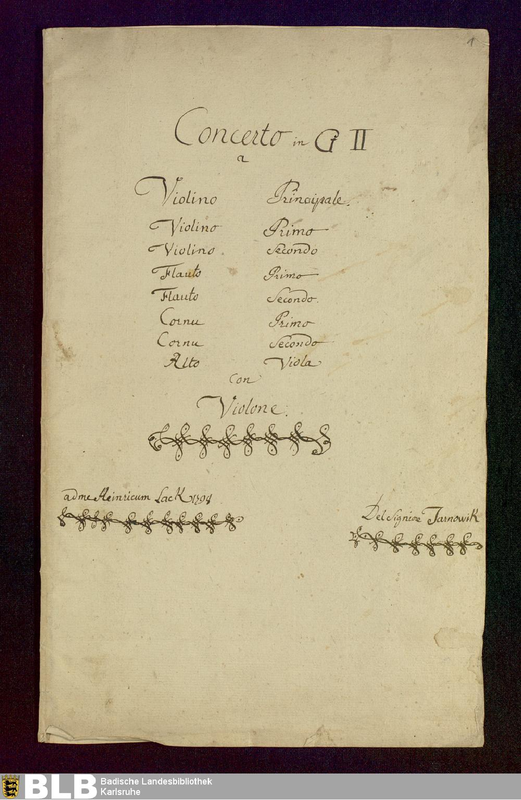 1
Concerto in G II
a
Violino Principale.
Violino Primo
Violino Secondo
Flauto Primo
Flauto Secondo.
Cornu Primo
Cornu Secondo
Alto Viola
con
Violone.
ad me Heinricum Lack
Del Signore Jarnowik
BLB Badische Landesbibliothek
Karlsruhe